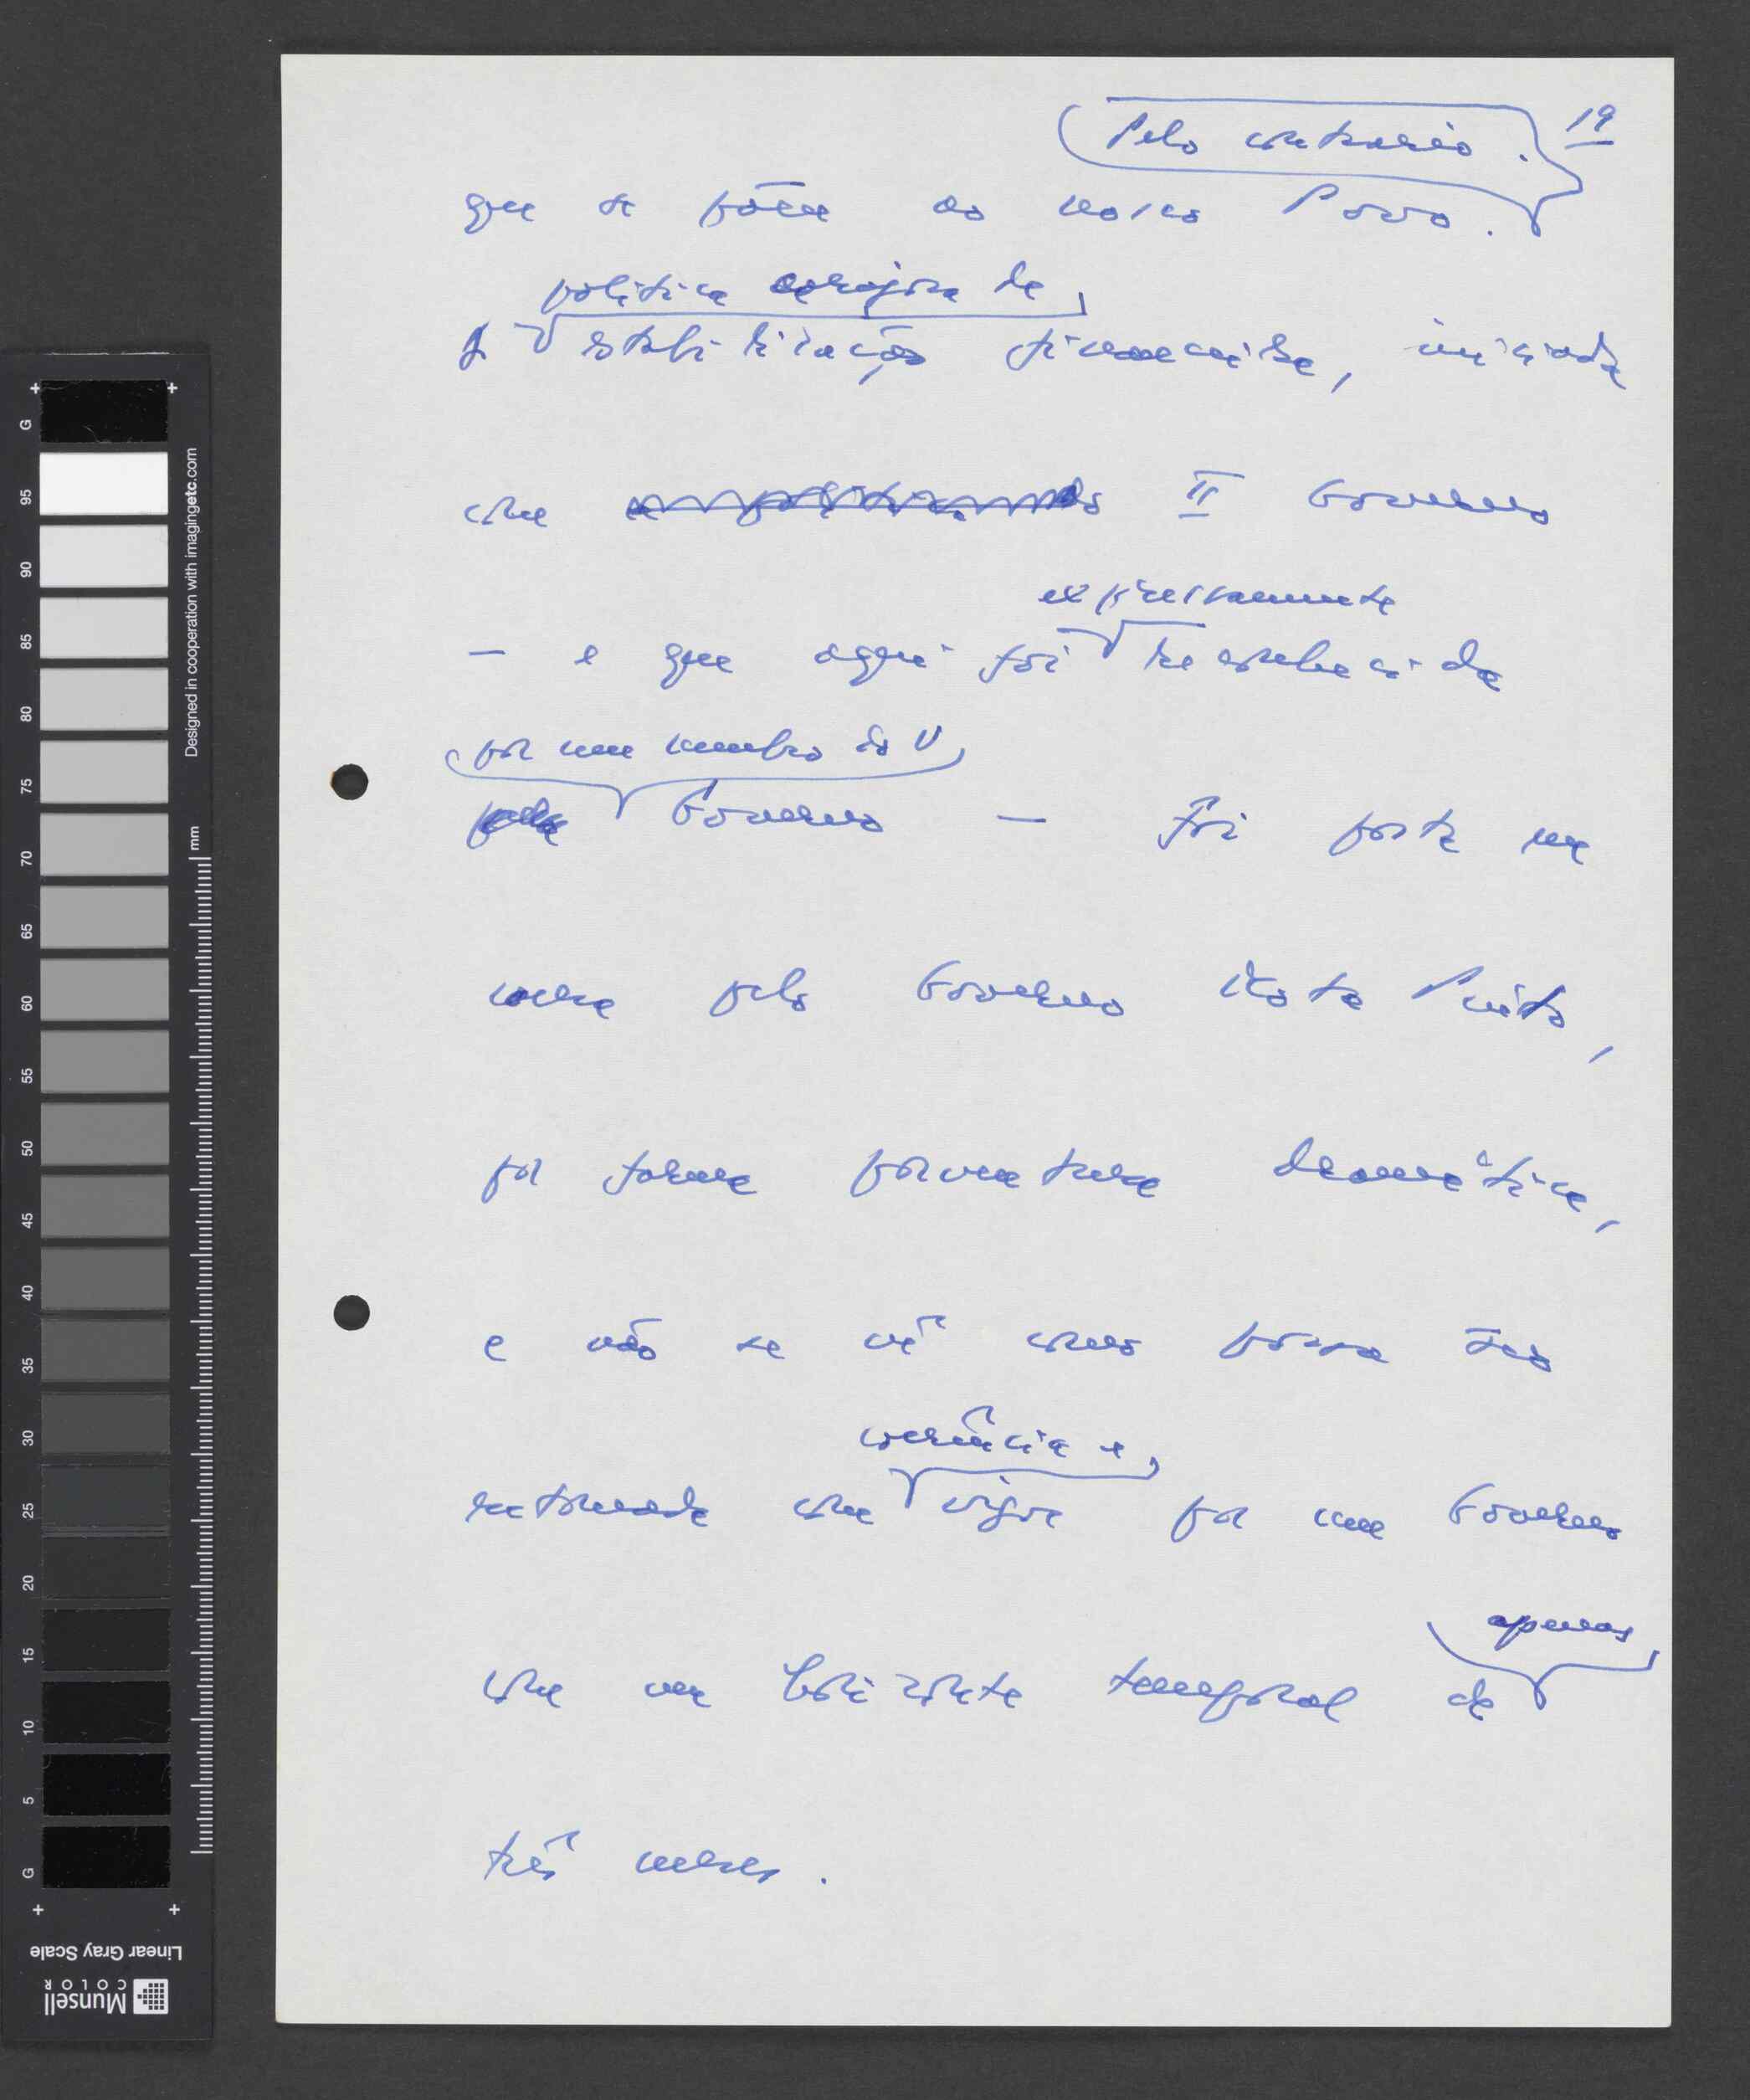 19
Pelo contrário.
que se põem ao nosso Povo.
política corajosa de
A estabilização financeira, iniciada
com a política do II Governo
expressamente
— e que aqui foi reconhecida
por um membro do V
pelo Governo — foi posta em
causa pelo Governo Mota Pinto,
por forma porventura dramática,
e não se vê como possa ser
coerência e
retomada com vigor por um Governo
apenas
com um horizonte temporal de
três meses.
G
95
90
85
80
75
70
65
60
55
50
45
40
35
30
25
20
15
10
5
G
mm
Designed in cooperation with imagingetc.com
Linear Gray Scale
Munsell
COLOR